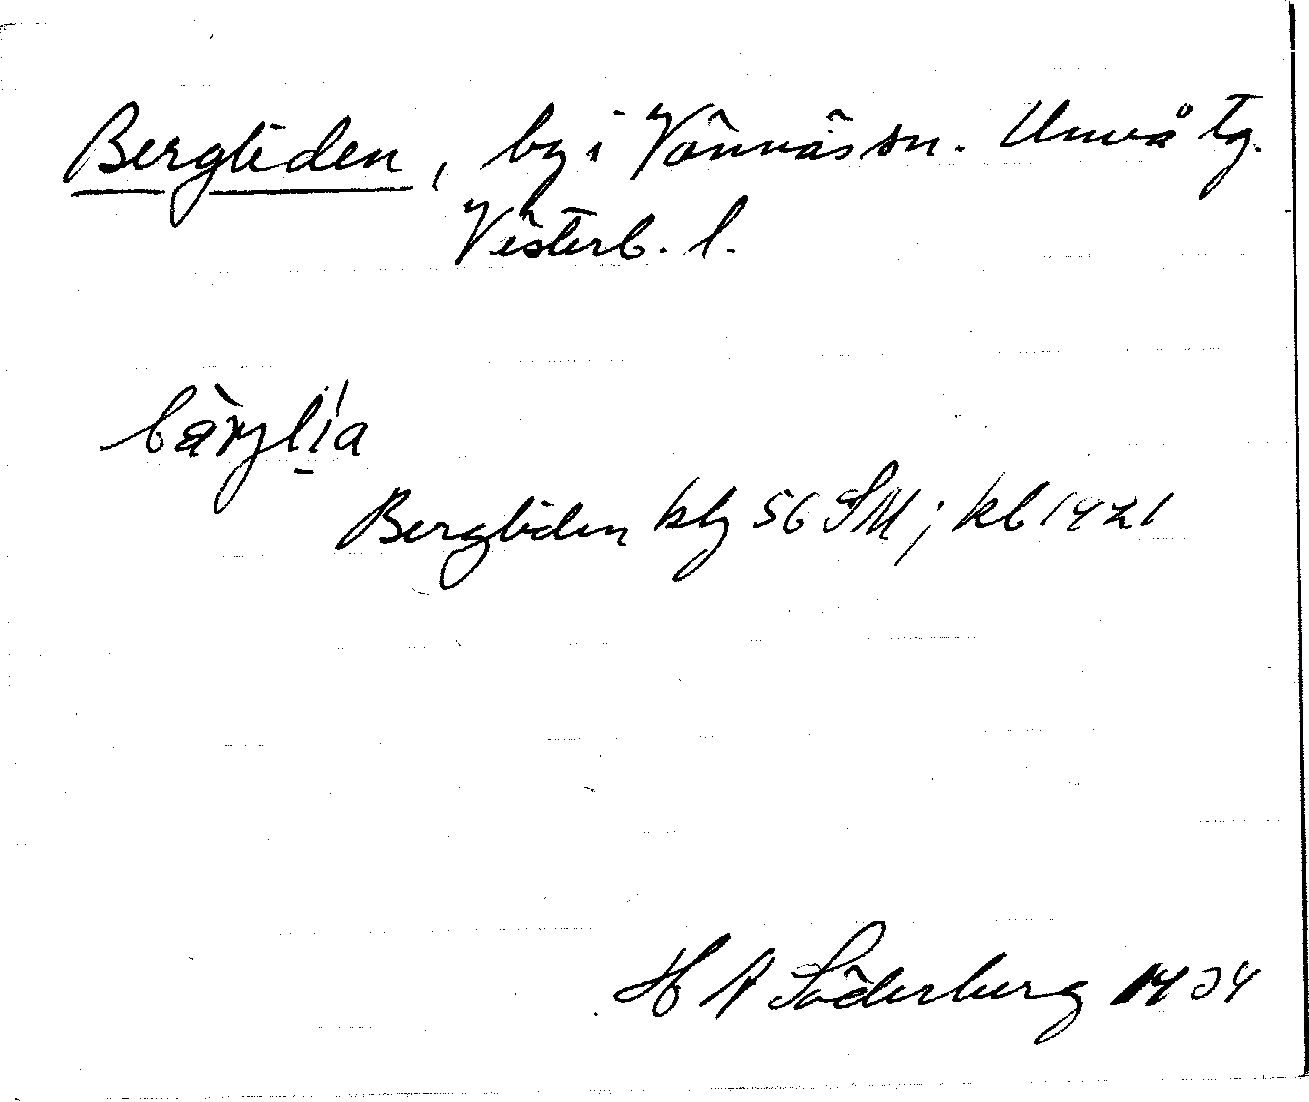 Bergliden, by i Vännäs sn. Umeå tg.
Västerb. l.
bàrjlía
Bergliden kbg 56 SM; kb 1921
H A Söderberg 1934